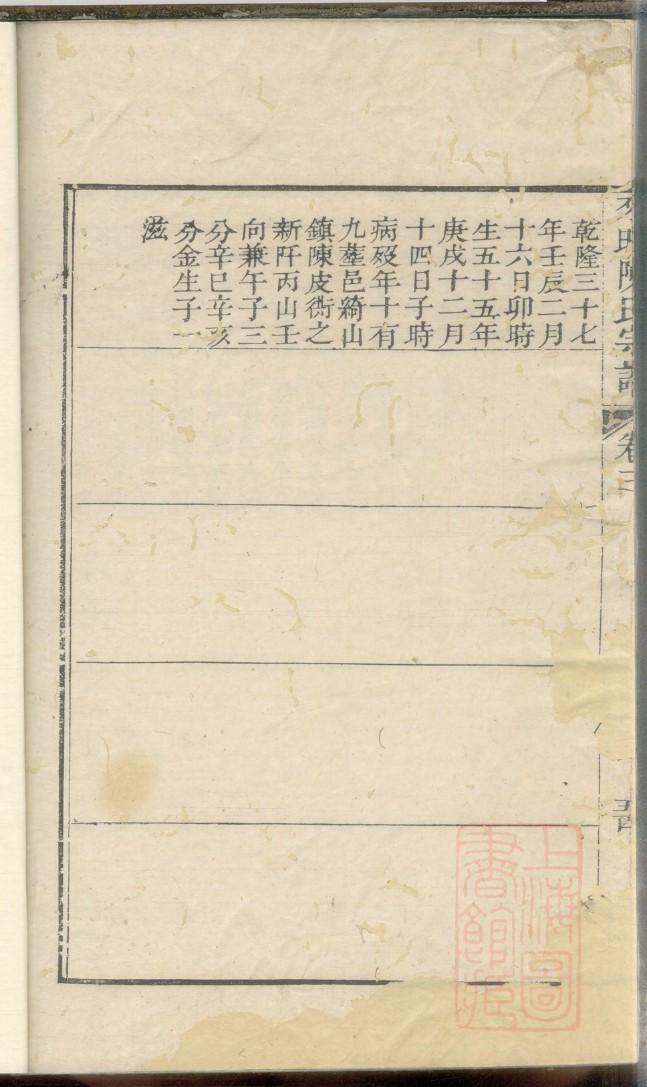 陳氏宗譜 卷三
乾隆三十七
年壬辰二月
十六日卯時
生五十五年
庚戌十二月
十四日子時
病歿年十有
九塟邑綺山
鎮陳皮衖之
新阡丙山壬
向兼午子三
分辛巳辛亥
分金生子一
滋
上海圖
書館藏